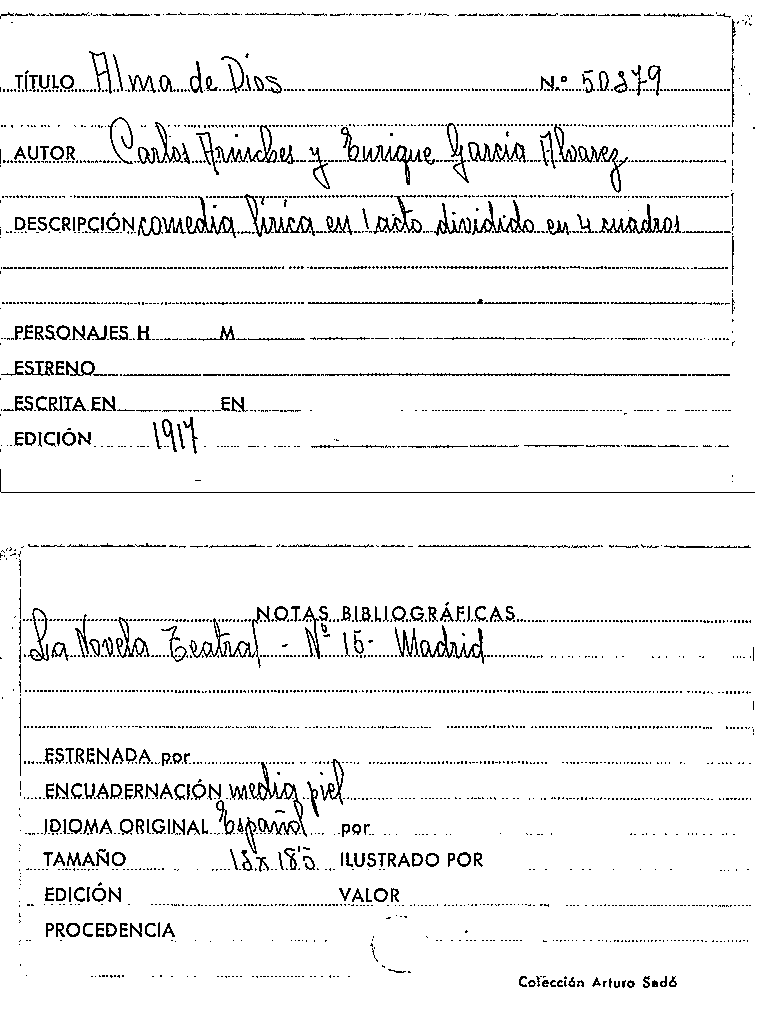 TÍTULO Alma de Dios N.º 50379
AUTOR Carlos Arniches y Enrique García Alvarez
DESCRIPCIÓN comedia lírica en 1 acto dividido en 4 cuadros
PERSONAJES H M
ESTRENO
ESCRITA EN EN
EDICIÓN 1917
NOTAS BIBLIOGRÁFICAS
La Novela Teatral - Nº 15- Madrid
ESTRENADA por
ENCUADERNACIÓN media piel
IDIOMA ORIGINAL Español por
TAMAÑO ILUSTRADO POR
EDICIÓN VALOR
PROCEDENCIA
Colección Arturo Sedó